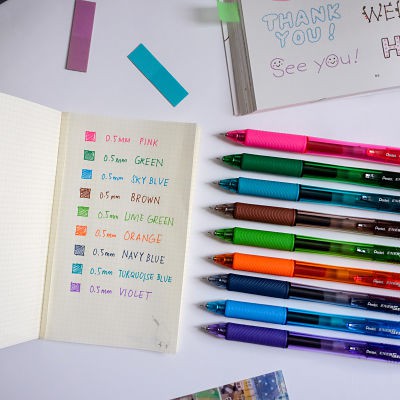 THANK
YOU!
See you!
0.5mm PINK
0.5mm GREEN
0.5mm SKY BLUE
0.5mm BROWN
0.5mm LIME GREEN
0.5mm ORANGE
0.5mm NAVY BLUE
0.5mm TURQUOISE BLUE
0.5mm VIOLET
Pentel
Pentel
Pentel
Pentel
Pentel
Pentel ENERGEL
Pentel ENERGEL
Pentel ENERGEL